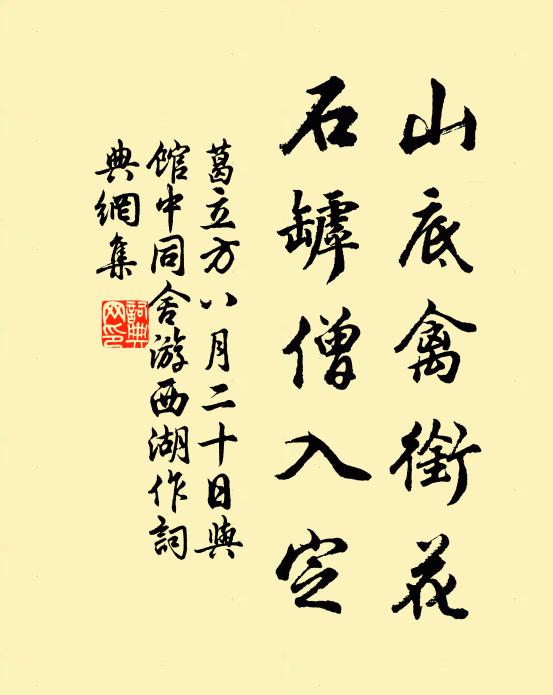 山底禽銜花
石罅僧入定
葛立方八月二十日與
館中同舍游西湖作詞
典網集
詞典
网印